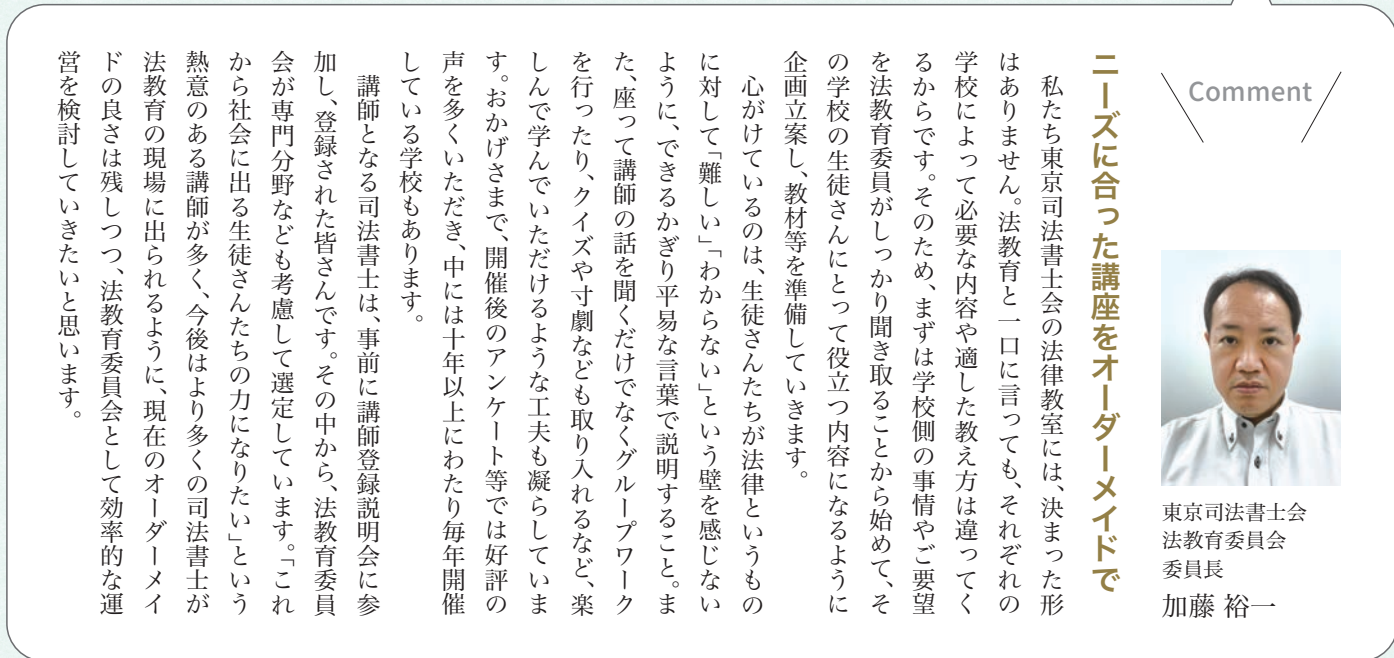 Comment
東京司法書士会
法教育委員会
委員長
加藤 裕一
ニーズに合った講座をオーダーメイドで
私たち東京司法書士会の法律教室には、決まった形
はありません。法教育と一口に言っても、それぞれの
学校によって必要な内容や適した教え方は違ってく
るからです。そのため、まずは学校側の事情やご要望
を法教育委員がしっかり聞き取ることから始めて、そ
の学校の生徒さんにとって役立つ内容になるように
企画立案し、教材等を準備していきます。
心がけているのは、生徒さんたちが法律というもの
に対して「難しい」「わからない」という壁を感じない
ように、できるかぎり平易な言葉で説明すること。ま
た、座って講師の話を聞くだけでなくグループワーク
を行ったり、クイズや寸劇なども取り入れるなど、楽
しんで学んでいただけるような工夫も凝らしていま
す。おかげさまで、開催後のアンケート等では好評の
声を多くいただき、中には十年以上にわたり毎年開催
している学校もあります。
講師となる司法書士は、事前に講師登録説明会に参
加し、登録された皆さんです。その中から、法教育委員
会が専門分野なども考慮して選定しています。「これ
から社会に出る生徒さんたちの力になりたい」という
熱意のある講師が多く、今後はより多くの司法書士が
法教育の現場に出られるように、現在のオーダーメイ
ドの良さは残しつつ、法教育委員会として効率的な運
営を検討していきたいと思います。